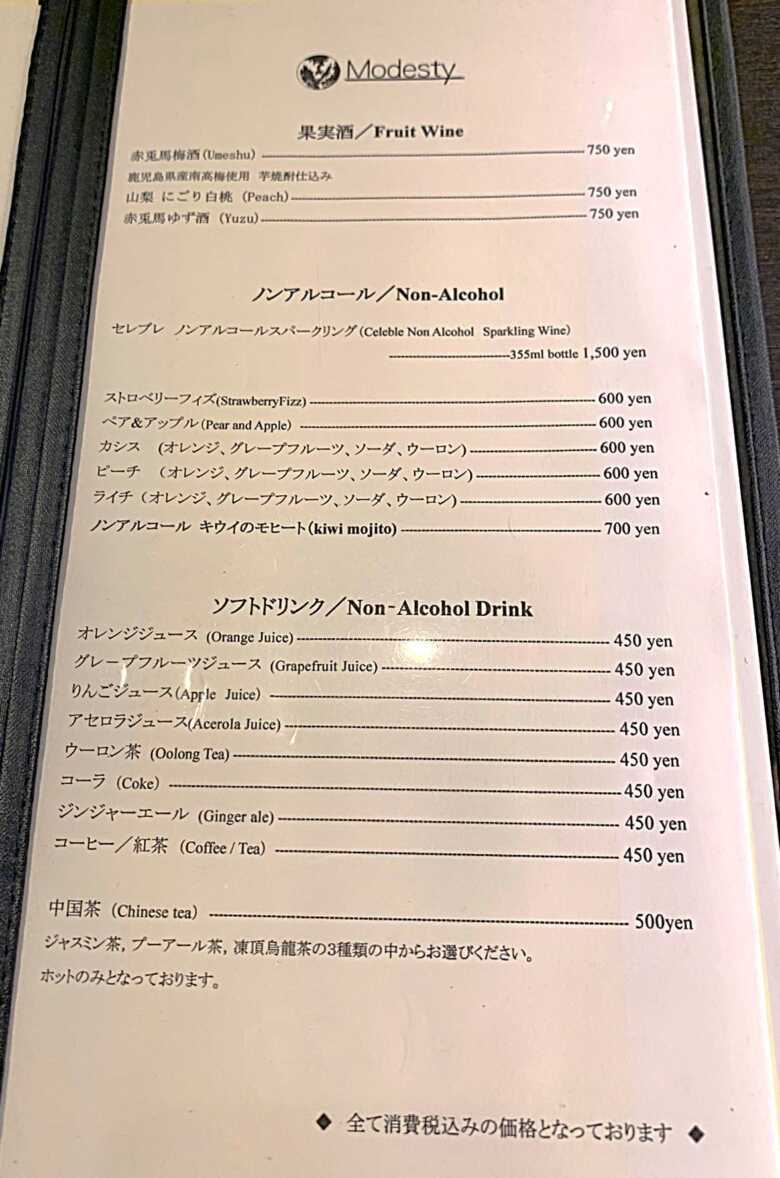 Modesty
果実酒／Fruit Wine
赤兎馬梅酒(Umeshu) 750 yen
鹿児島県産南高梅使用 芋焼酎仕込み
山梨 にごり白桃 (Peach) 750 yen
赤兎馬ゆず酒 (Yuzu) 750 yen
ノンアルコール／Non-Alcohol
セレブレ ノンアルコールスパークリング(Celeble Non Alcohol Sparkling Wine)
355ml bottle 1,500 yen
ストロベリーフィズ(StrawberryFizz) 600 yen
ペア&アップル(Pear and Apple) 600 yen
カシス (オレンジ、グレープフルーツ、ソーダ、ウーロン) 600 yen
ピーチ (オレンジ、グレープフルーツ、ソーダ、ウーロン) 600 yen
ライチ (オレンジ、グレープフルーツ、ソーダ、ウーロン) 600 yen
ノンアルコール キウイのモヒート(kiwi mojito) 700 yen
ソフトドリンク／Non-Alcohol Drink
オレンジジュース (Orange Juice) 450 yen
グレープフルーツジュース (Grapefruit Juice) 450 yen
りんごジュース(Apple Juice) 450 yen
アセロラジュース(Acerola Juice) 450 yen
ウーロン茶 (Oolong Tea) 450 yen
コーラ (Coke) 450 yen
ジンジャーエール (Ginger ale) 450 yen
コーヒー／紅茶 (Coffee / Tea) 450 yen
中国茶 (Chinese tea) 500yen
ジャスミン茶, プーアール茶, 凍頂烏龍茶の3種類の中からお選びください。
ホットのみとなっております。
◆ 全て消費税込みの価格となっております ◆